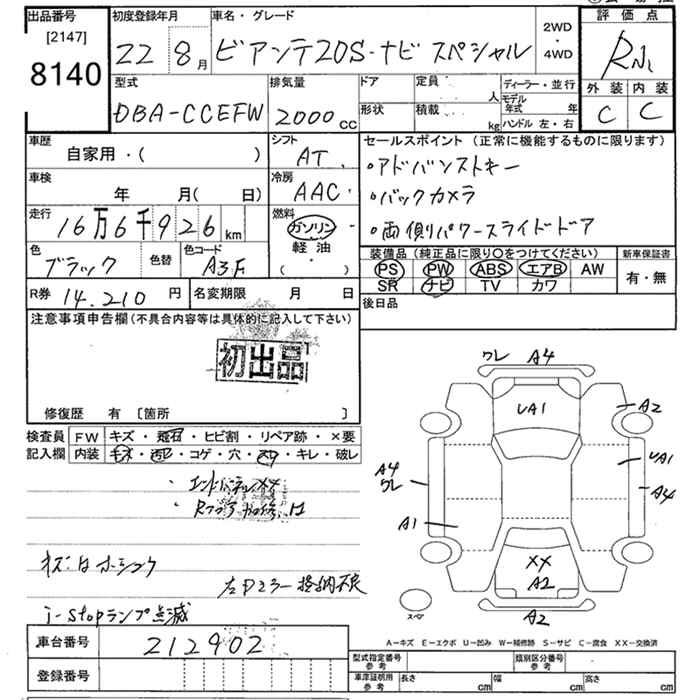 出品番号
[2147]
8140
初度登録年月
22 8月
車名・グレード
ビアンテ20S-ナビスペシャル
2WD
・
4WD
評価点
外装 内装
C C
型式
DBA-CCEFW
排気量
2000cc
ドア
形状
定員 人
積載 kg
ディーラー・並行
モデル年式 年
ハンドル 左・右
車歴
自家用・( )
シフト
AT
車検
年 月( 日)
冷房
AAC
走行
16万6千926km
燃料
ガソリン
軽油
( ・ )
色
ブラック
色替
色コード
A3F
R券 14.210円
名変期限 月 日
セールスポイント(正常に機能するものに限ります)
・アドバンストキー
・バックカメラ
・両側パワースライドドア
装備品(純正品に限り○をつけてください)
PS PW ABS エアB AW
SR ナビ TV カワ
新車保証書
有・無
後日品
注意事項申告欄(不具合内容等は具体的に記入して下さい)
初出品
修復歴 有 [箇所 ]
検査員記入欄
FW キズ・飛石・ヒビ割・リペア跡・×要
内装 キズ・汚レ・コゲ・穴・スリ・キレ・破レ
・エンドパネルXX
キズ・はホシュウ
左Dミラー格納不良
i-stopランプ点滅
車台番号 212902
登録番号
ワレ A4
UA1
A2
UA1
A4
A4
ワレ
A1
XX
A2
A2
スペア
A-キズ E-エクボ U-凹み W-補修跡 S-サビ C-腐食 XX-交換済
型式指定番号 参考
類別区分番号 参考
車庫証明用 参考
長さ cm
幅 cm
高さ cm